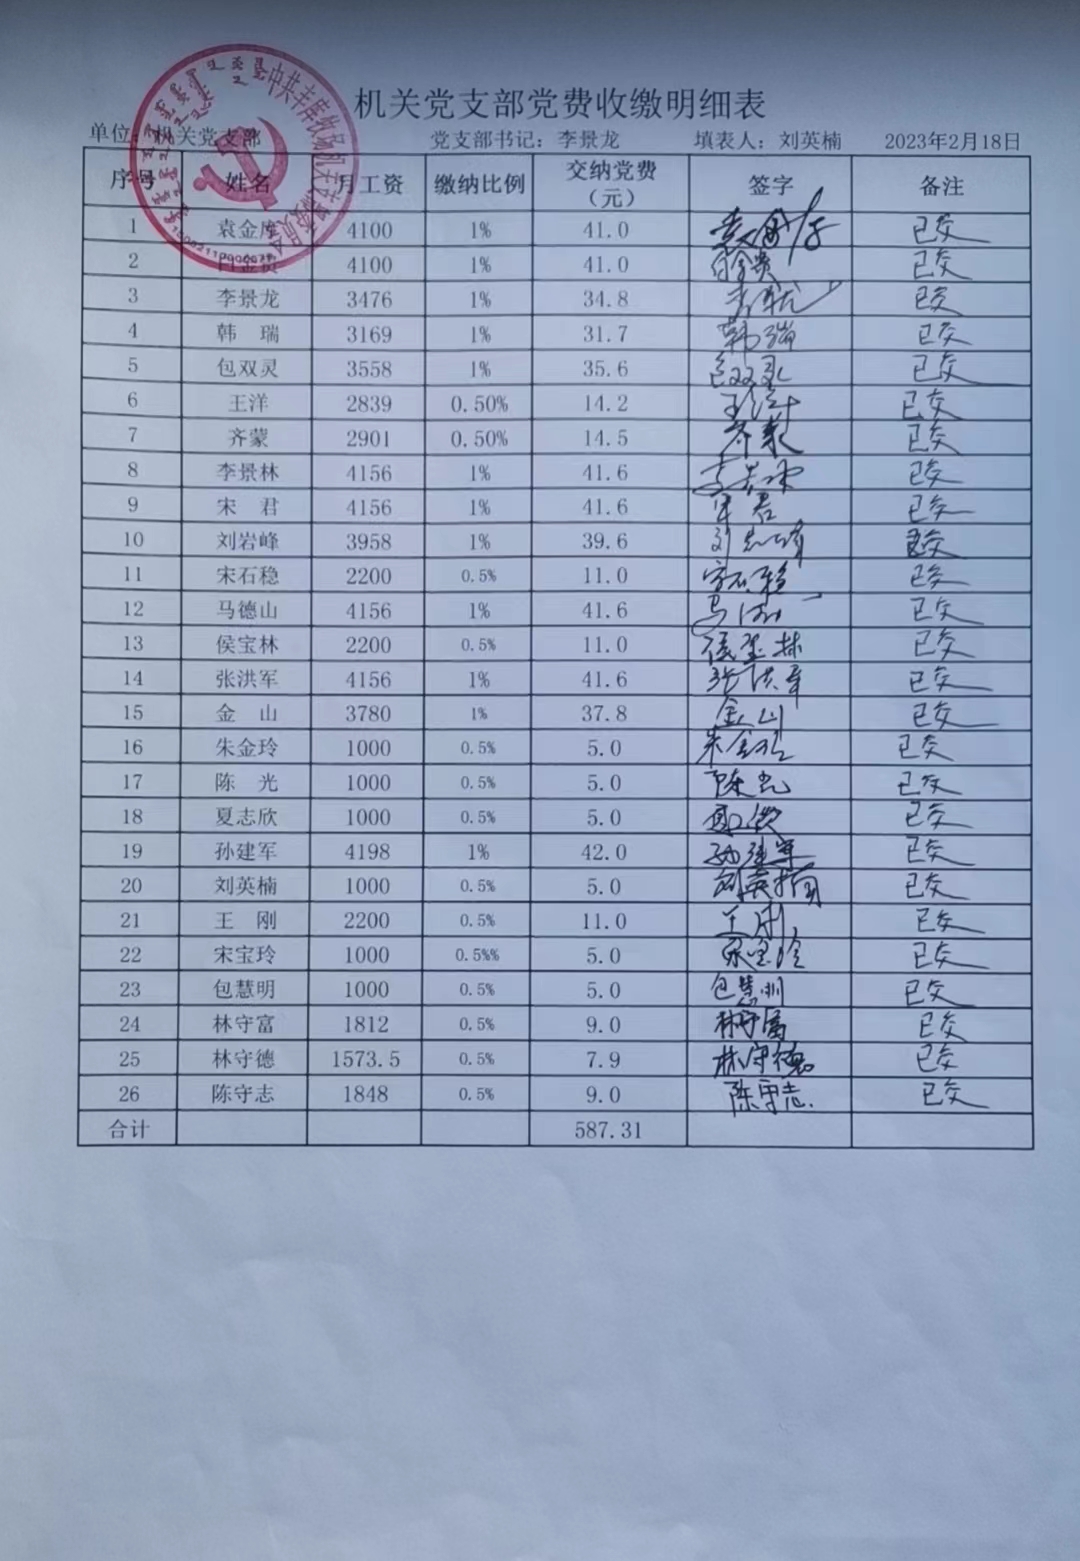 机关党支部党费收缴明细表
单位：机关党支部 党支部书记：李景龙 填表人：刘英楠 2023年2月18日
序号 姓名 月工资 缴纳比例 交纳党费（元） 签字 备注
1 袁金库 4100 1% 41.0 袁金库 已交
2 4100 1% 41.0 已交
3 李景龙 3476 1% 34.8 已交
4 韩 瑞 3169 1% 31.7 韩瑞 已交
5 包双灵 3558 1% 35.6 包双灵 已交
6 王洋 2839 0.50% 14.2 王洋 已交
7 齐蒙 2901 0.50% 14.5 齐蒙 已交
8 李景林 4156 1% 41.6 李景林 已交
9 宋 君 4156 1% 41.6 宋君 已交
10 刘岩峰 3958 1% 39.6 刘岩峰 已交
11 宋石稳 2200 0.5% 11.0 宋石稳 已交
12 马德山 4156 1% 41.6 马德山 已交
13 侯宝林 2200 0.5% 11.0 侯宝林 已交
14 张洪军 4156 1% 41.6 张洪军 已交
15 金 山 3780 1% 37.8 金山 已交
16 朱金玲 1000 0.5% 5.0 朱金玲 已交
17 陈 光 1000 0.5% 5.0 陈光 已交
18 夏志欣 1000 0.5% 5.0 已交
19 孙建军 4198 1% 42.0 孙建军 已交
20 刘英楠 1000 0.5% 5.0 刘英楠 已交
21 王 刚 2200 0.5% 11.0 王刚 已交
22 宋宝玲 1000 0.5%% 5.0 宋宝玲 已交
23 包慧明 1000 0.5% 5.0 包慧明 已交
24 林守富 1812 0.5% 9.0 林守富 已交
25 林守德 1573.5 0.5% 7.9 林守德 已交
26 陈守志 1848 0.5% 9.0 陈守志 已交
合计 587.31